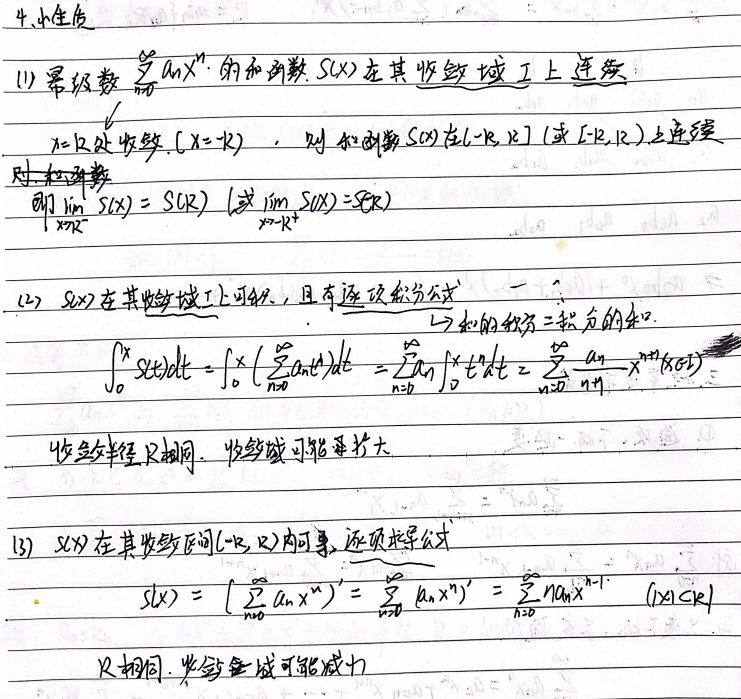 4、小性质
(1) 幂级数 ∑_{n=0}^∞ aₙxⁿ 的和函数 S(x) 在其收敛域 I 上连续
x=R处收敛.(x=-R) . 则 和函数 S(x) 在(-R, R] (或 [-R, R) 上连续
则.和函数
即 lim_{x→R⁻} S(x) = S(R) (或 lim_{x→-R⁺} S(x) = S(-R)
(2) S(x) 在其收敛域 I 上可积, 且有逐项积分公式
↳ 和的积分=积分的和.
∫₀ˣ S(t)dt = ∫₀ˣ (∑_{n=0}^∞ aₙtⁿ)dt = ∑_{n=0}^∞ aₙ ∫₀ˣ tⁿdt = ∑_{n=0}^∞ aₙ/(n+1) xⁿ⁺¹ (x∈I)
收敛半径 R相同. 收敛域可能扩大
(3) S(x) 在其收敛区间(-R, R) 内可导, 逐项求导公式
S(x) = (∑_{n=0}^∞ aₙxⁿ)' = ∑_{n=0}^∞ (aₙxⁿ)' = ∑_{n=0}^∞ naₙxⁿ⁻¹ (|x|<R)
R相同. 收敛域可能减小